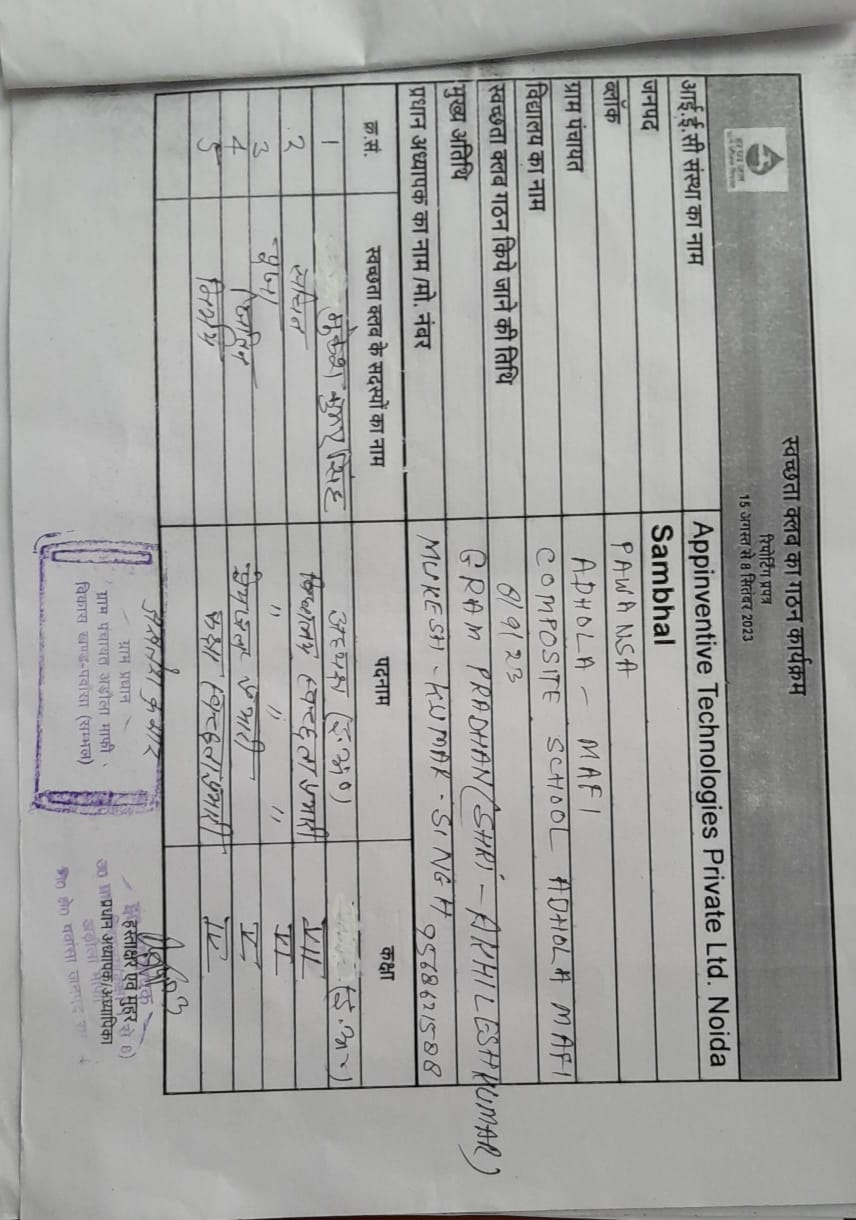 स्वच्छता क्लब का गठन कार्यक्रम
रिपोर्टिंग प्रपत्र
15 अगस्त से 8 सितंबर 2023
आई.ई.सी संस्था का नाम Appinventive Technologies Private Ltd. Noida
जनपद Sambhal
ब्लॉक PAWANSA
ग्राम पंचायत ADHOLA - MAFI
विद्यालय का नाम COMPOSITE SCHOOL ADHOLA MAFI
स्वच्छता क्लब गठन किये जाने की तिथि 8/9/23
मुख्य अतिथि GRAM PRADHAN (SHRI - AKHILESH KUMAR)
प्रधान अध्यापक का नाम /मो. नंबर MUKESH - KUMAR - SINGH 9568621588
क्र.सं. स्वच्छता क्लब के सदस्यों का नाम पदनाम कक्षा
1 मुकेश कुमार सिंह अध्यक्ष (इ.अ०) (इ.अ०)
2 सचिन विद्यालय स्वच्छता प्रभारी VII
3 " " " VI
4 V
5 कक्षा स्वच्छता प्रभारी IV
ग्राम प्रधान
ग्राम पंचायत अढौला माफी
विकास खण्ड-पवांसा (सम्भल)
हस्ताक्षर एवं मुहर
प्रधान अध्यापक/अध्यापिका